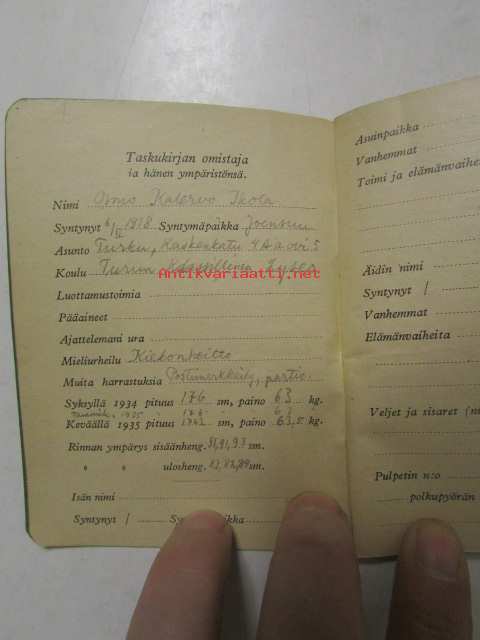 Taskukirjan omistaja
ja hänen ympäristönsä.
Nimi Osmo Kalervo Ikola
Syntynyt 6/II 1918 Syntymäpaikka Joensuu
Asunto Turku, Kaskenkatu 4 A a ovi 5
Koulu Turun Klassillinen Lyseo
Luottamustoimia
Pääaineet
Ajattelemani ura
Mieliurheilu Kiekonheitto
Muita harrastuksia Postimerkkeily, partio.
Syksyllä 1934 pituus 176 sm, paino 63 kg.
Keväällä 1935 pituus sm, paino 63,5 kg.
Rinnan ympärys sisäänheng. 91, 91, 93 sm.
" " ulosheng. sm.
Isän nimi
Syntynyt /
Asuinpaikka
Vanhemmat
Toimi ja elämänvaihe
Äidin nimi
Syntynyt /
Vanhemmat
Elämänvaiheita
Veljet ja sisaret
Pulpetin n:o
polkupyörän
Antikvariaatti.net